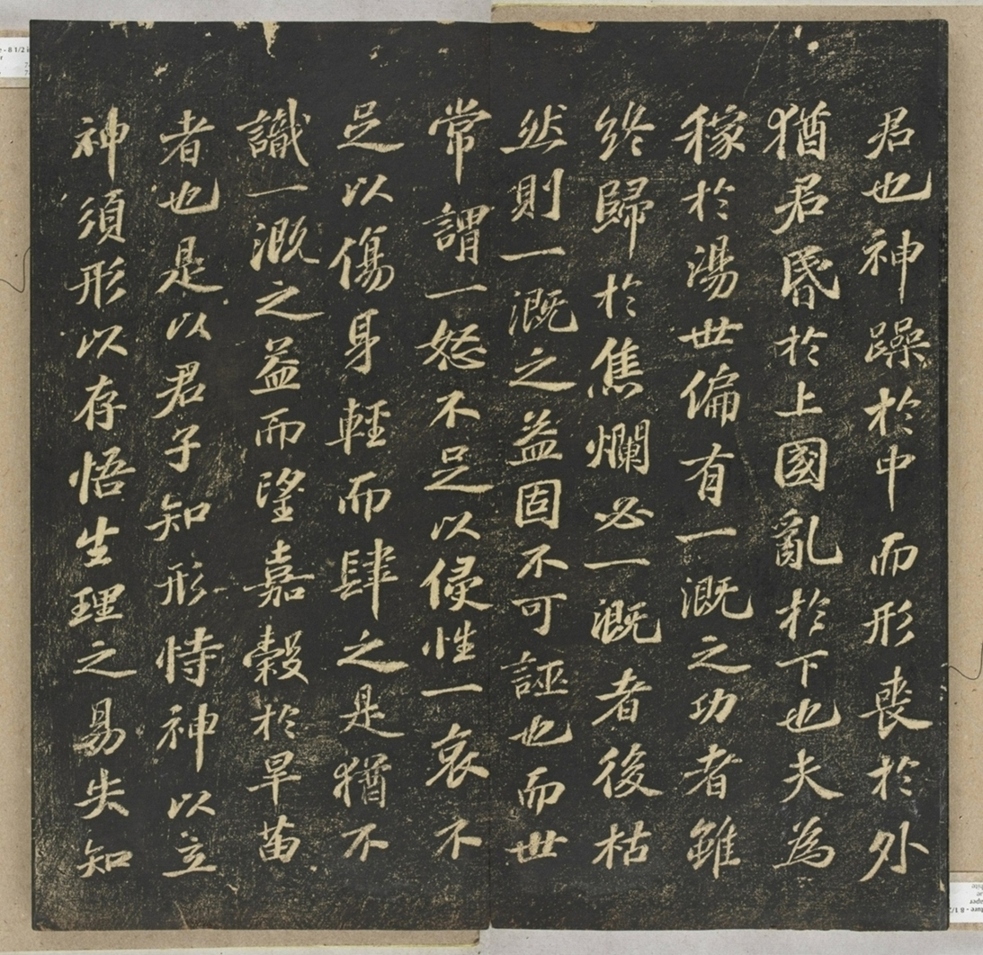 君也神躁於中而形喪於外
猶君昬於上國亂於下也夫為
稼於湯世偏有一溉之功者雖
終歸於焦爛必一溉者後枯
然則一溉之益固不可誣也而世
常謂一怒不足以侵性一哀不
足以傷身輕而肆之是猶不
識一溉之益而望嘉穀於旱苗
者也是以君子知形恃神以立
神須形以存悟生理之易失知